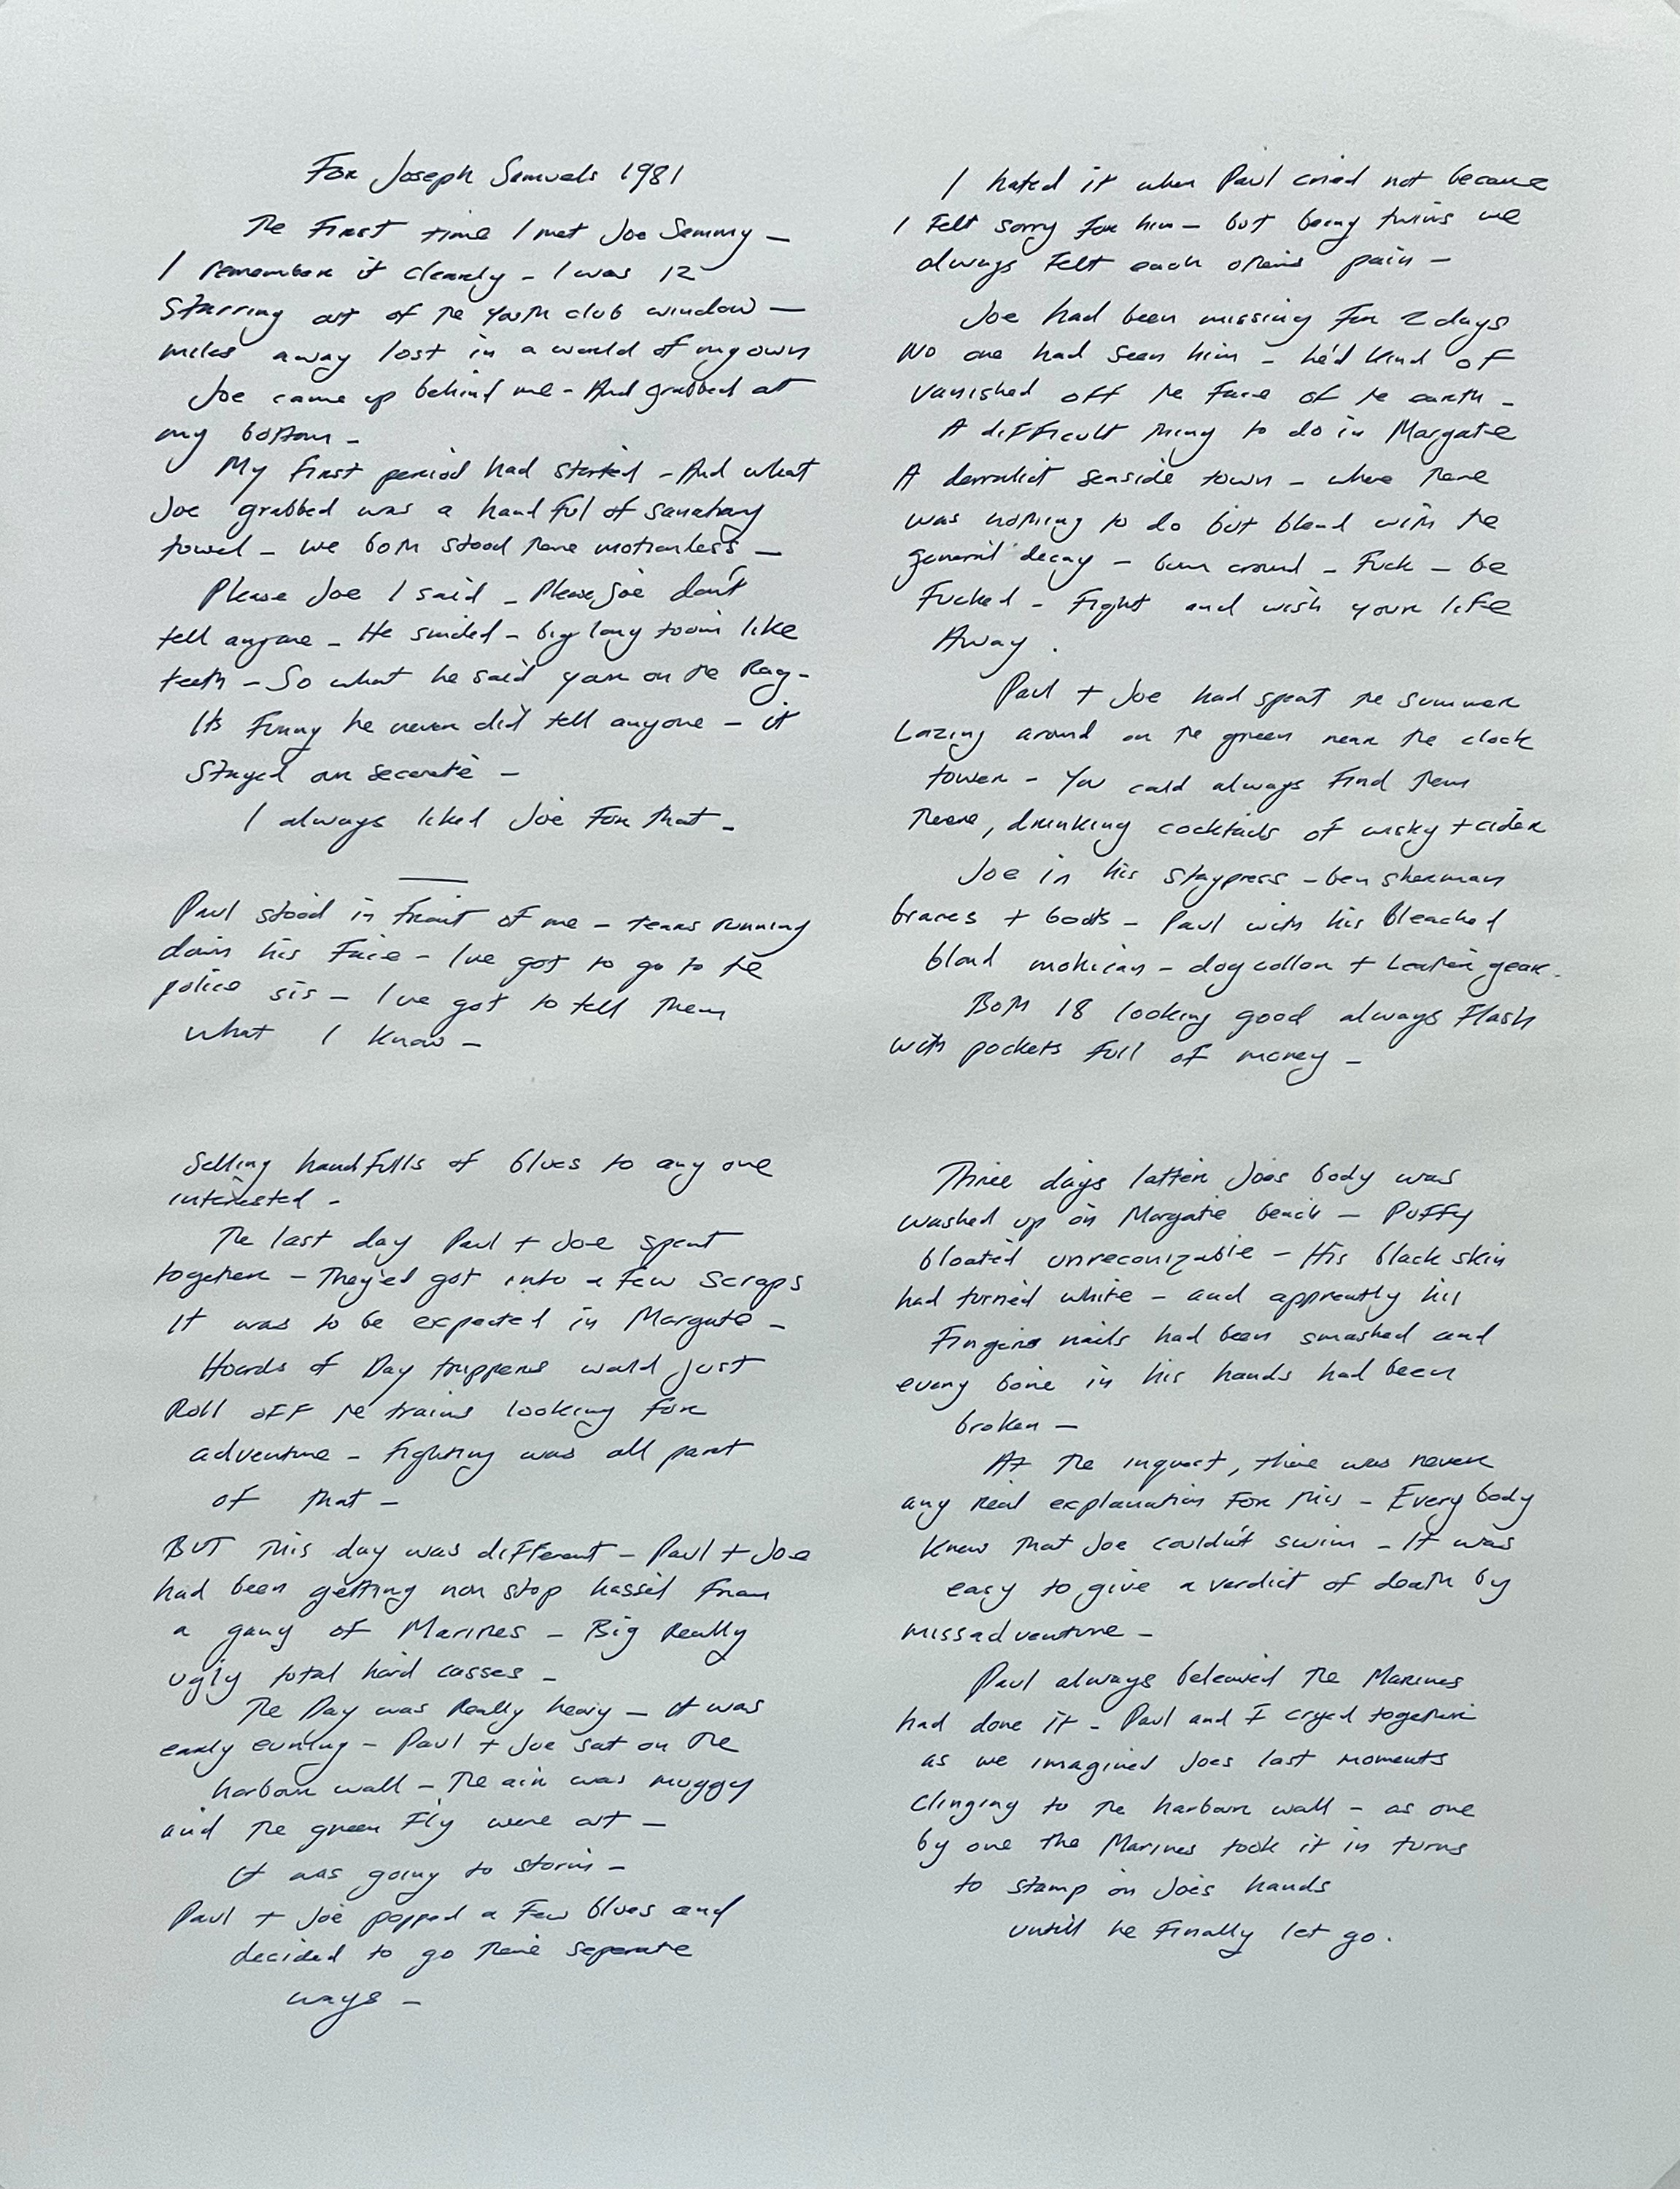 For Joseph Samuels 1981
The First time I met Joe Sammy –
I remember it clearly – I was 12
Starring out of the youth club window –
miles away lost in a world of my own
Joe came up behind me – And grabbed at
my bottom –
My first period had started – And what
Joe grabbed was a hand ful of sanatary
towel – we both stood there motionless –
Please Joe I said – Please Joe don't
tell anyone – He smiled – big long toom like
teeth – So what he said your on the Rag –
Its Funny he never did tell anyone – it
Stayed our secerate –
I always liked Joe For that –
Paul stood in front of me – tears running
down his Face – Ive got to go to the
police sis – Ive got to tell them
what I know –
I hated it when Paul cried not because
I Felt sorry For him – but being twins we
always Felt each others pain –
Joe had been missing For 2 days
No one had seen him – he'd kind of
vanished off the Face of the earth –
A difficult thing to do in Margate
A derralict seaside town – where there
was nothing to do but blend with the
general decay – bum around – Fuck – be
Fucked – Fight and wish your life
Away .
Paul + Joe had spent the summer
Lazing around on the green near the clock
tower – You could always Find them
There, drinking cocktails of wisky + cider
Joe in his staypress – ben sherman
braces + boots – Paul with his Bleached
blond mohican – dog collar + Leather gear.
Both 18 looking good always Flash
with pockets full of money –
Selling handfulls of blues to any one
interested –
The last day Paul + Joe spent
together – They'ed got into a few scraps
It was to be expected in Margate –
Hoards of Day trippers would just
Roll off the trains looking for
adventure – Fighting was all part
of that –
BUT This day was different – Paul + Joe
had been getting non stop hassel from
a gang of Marines – Big Really
ugly total hard casses –
The Day was Really heavy – it was
early evning – Paul + Joe sat on the
harbour wall – The air was muggy
and the green Fly were out –
It was going to storm –
Paul + Joe popped a Few blues and
decided to go there seperate
ways –
Three days latter Joes body was
washed up on Margate beach – Puffy
bloated unreconizable – His black skin
had turned white – and apprently his
Fingers nails had been smashed and
every bone in his hands had been
broken –
At The inquest, there was never
any real explanation For this – Every body
knew that Joe couldn't swim – It was
easy to give a verdict of death by
missadventure –
Paul always beleaved The Marines
had done it – Paul and I cryed together
as we imagined Joes last moments
Clinging to the harbour wall – as one
by one the Marines took it in turns
to stamp on Joe's hands
untill he Finally let go.